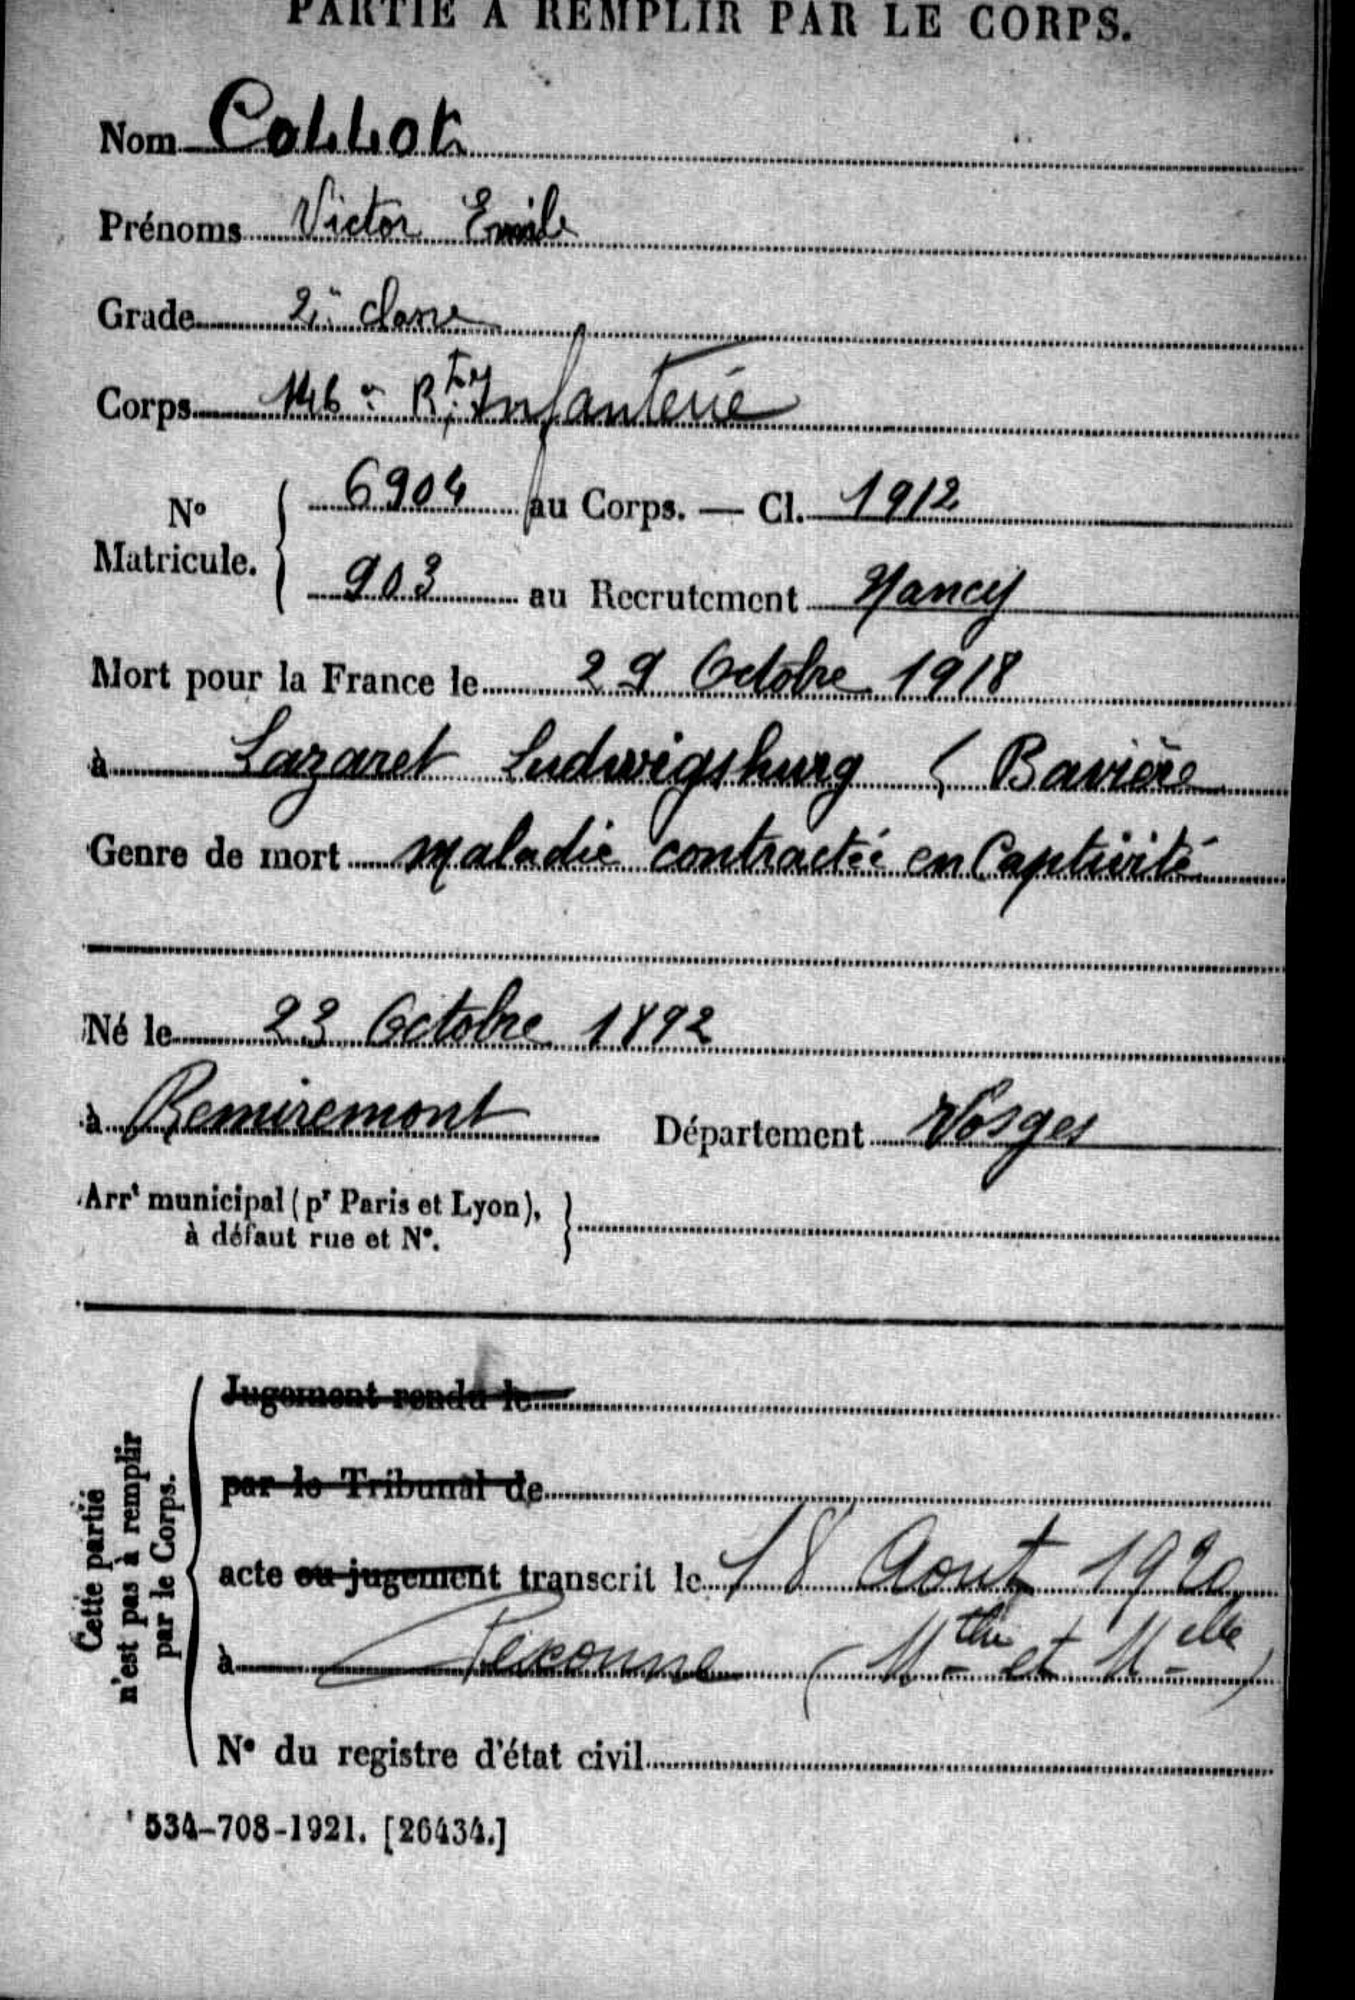 PARTIE A REMPLIR PAR LE CORPS.
Nom Collot
Prénoms Victor Emile
Grade 2e classe
Corps 146e Rt Infanterie
No Matricule. { 6904 au Corps. — Cl. 1912
903 au Recrutement Nancy
Mort pour la France le 29 Octobre 1918
à Lazaret Ludwigsburg ( Bavière
Genre de mort maladie contractée en Captivité
Né le 23 Octobre 1892
à Remiremont Département Vosges
Arrt municipal (pr Paris et Lyon), à défaut rue et No. }
Cette partie n'est pas à remplir par le Corps.
Jugement rendu le
par le Tribunal de
acte ou jugement transcrit le 18 Aout 1920
à Pexonne (Mthe et Melle)
No du registre d'état civil
534-708-1921. [26434.]